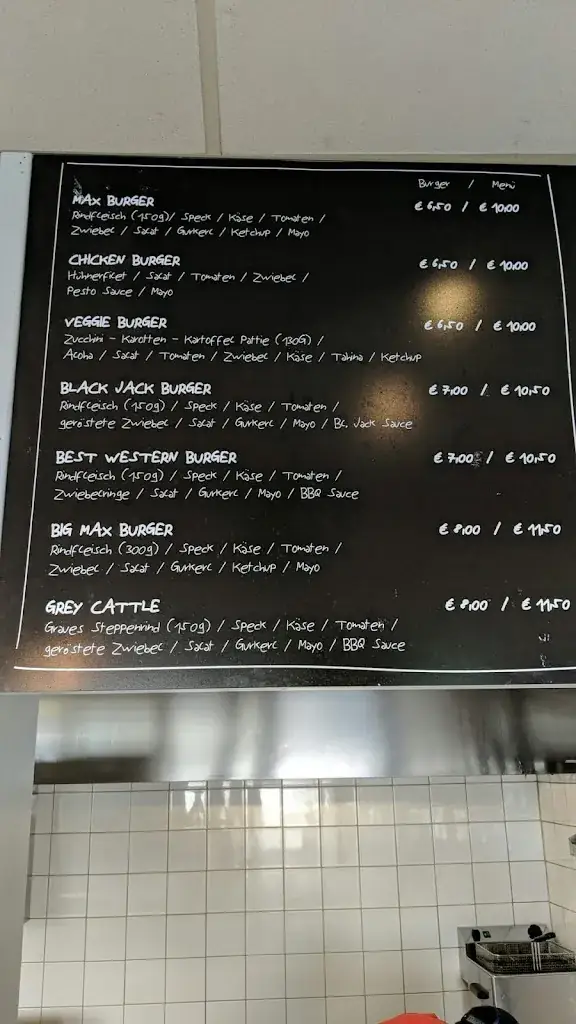 Burger / Menü
MAX BURGER € 6,50 / € 10,00
Rindfleisch (150g) / Speck / Käse / Tomaten /
Zwiebel / Salat / Gurkerl / Ketchup / Mayo
CHICKEN BURGER € 6,50 / € 10,00
Hühnerfilet / Salat / Tomaten / Zwiebel /
Pesto Sauce / Mayo
VEGGIE BURGER € 6,50 / € 10,00
Zucchini - Karotten - Kartoffel Pattie (130G) /
/ Salat / Tomaten / Zwiebel / Käse / Tahina / Ketchup
BLACK JACK BURGER € 7,00 / € 10,50
Rindfleisch (150g) / Speck / Käse / Tomaten /
geröstete Zwiebel / Salat / Gurkerl / Mayo / BL. Jack Sauce
BEST WESTERN BURGER € 7,00 / € 10,50
Rindfleisch (150g) / Speck / Käse / Tomaten /
Zwiebelringe / Salat / Gurkerl / Mayo / BBQ Sauce
BIG MAX BURGER € 8,00 / € 11,50
Rindfleisch (300g) / Speck / Käse / Tomaten /
Zwiebel / Salat / Gurkerl / Ketchup / Mayo
GREY CATTLE € 8,00 / € 11,50
Graues Steppenrind (150g) / Speck / Käse / Tomaten /
geröstete Zwiebel / Salat / Gurkerl / Mayo / BBQ Sauce